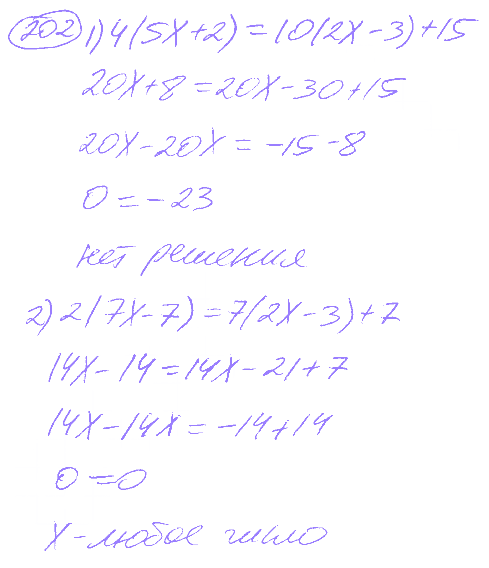 202 1) 4(5x+2)=10(2x-3)+15
20x+8=20x-30+15
20x-20x=-15-8
0=-23
нет решения
2) 2(7x-7)=7(2x-3)+7
14x-14=14x-21+7
14x-14x=-14+14
0=0
x-любое число